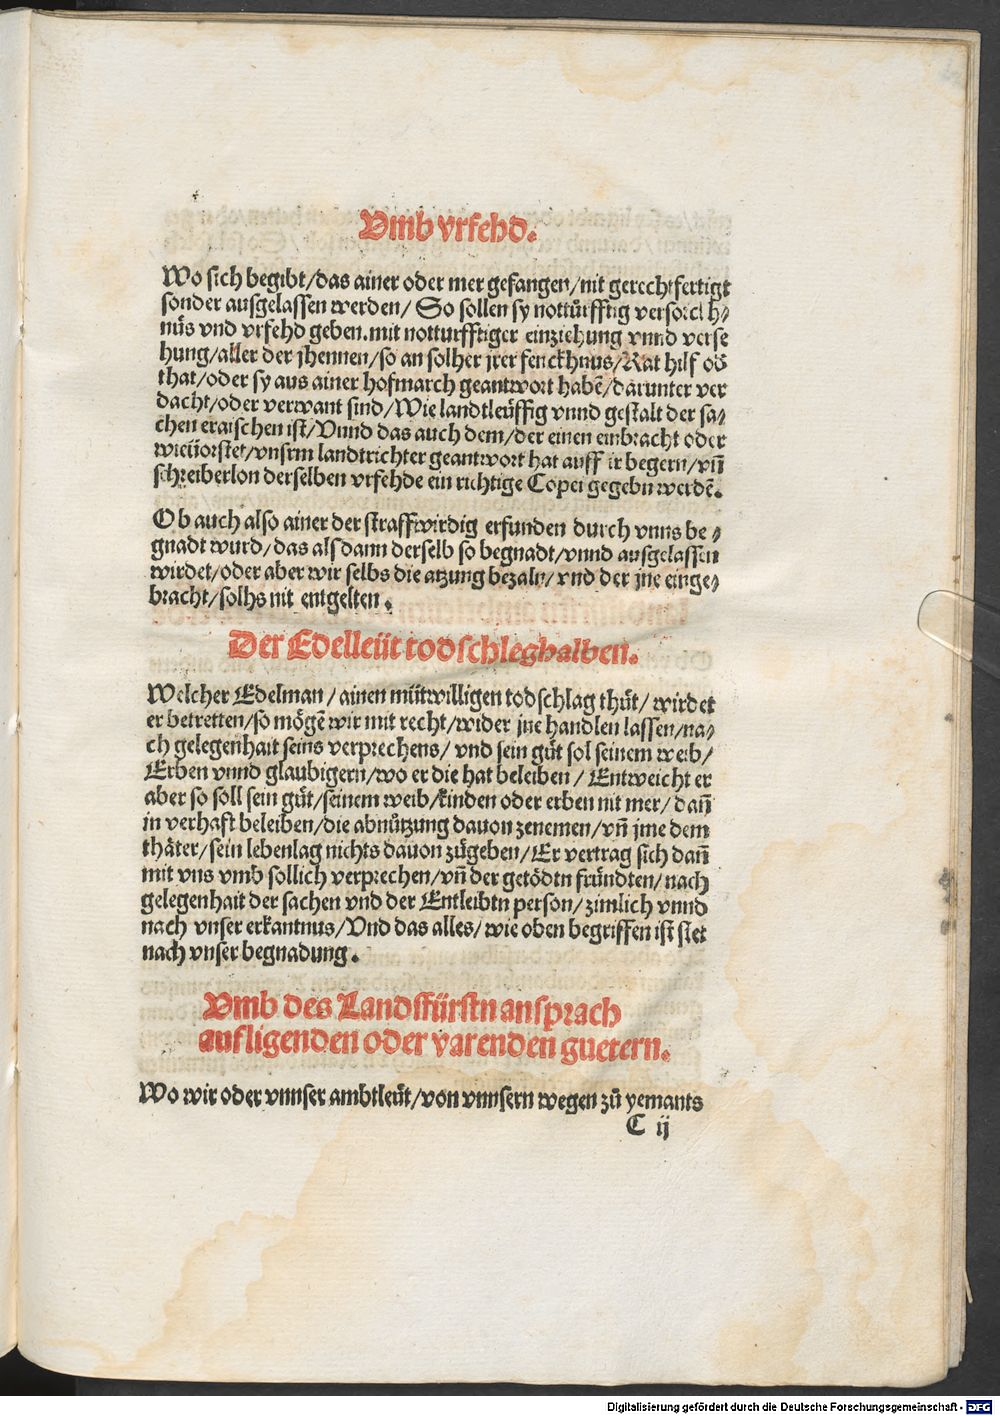 Vmb vrfehd.
Wo sich begibt/das ainer oder mer gefangen/nit gerechtfertigt
sonder ausgelassen werden/ So sollen sy notturfftig versorch⸗
nüs vnd vrfehd geben.mit notturfftiger einziehung vnnd verse
hung/aller der jhennen/so an solher jrer fenckhnus/Rat hilf od̄
that/oder sy aus ainer hofmarch geantwort habē/darunter ver
dacht/oder verwant sind/Wie landtleüffig vnnd gestalt der sa⸗
chen eraischen ist/Vnnd das auch dem/der einen einbracht oder
vnsrm landtrichter geantwort hat auff ir begern/vn̄
schreiberlon derselben vrfehde ein richtige Copei gegebn werdē.
Ob auch also ainer der straffwirdig erfunden durch vnns be⸗
gnadt wurd/das alsdann derselb so begnadt/vnnd ausgelassen
wirdet/oder aber wir selbs die atzung bezaln/vnd der jne einge⸗
bracht/solhs nit entgelten.
Der Edelleüt todschleghalben.
Welcher Edelman/ainen mütwilligen todschlag thůt/wirdet
er betretten/so mögē wir mit recht/wider jne handlen lassen/na⸗
ch gelegenhait seins verprechens/ vnd sein gůt sol seinem weib/
Erben vnnd glaubigern/wo er die hat beleiben/ Entweicht er
aber so soll sein gůt/seinem weib/kinden oder erben nit mer/dan̄
in verhaft beleiben/die abnützung dauon zenemen/vn̄ jme dem
thäter/sein lebenlag nichts dauon zůgeben/Er vertrag sich dan̄
mit vns vmb sollich verprechen/vn̄ der getödtn fründten/nach
gelegenhait der sachen vnd der Entleibtn person/zimlich vnnd
nach vnser erkantnus/Vnd das alles/wie oben begriffen ist stet
nach vnser begnadung.
Vmb des Landsfürstn ansprach
auf ligenden oder varenden guetern.
Wo wir oder vnnser ambtleüt/von vnnsern wegen zů yemants
C ij
Digitalisierung gefördert durch die Deutsche Forschungsgemeinschaft - DFG